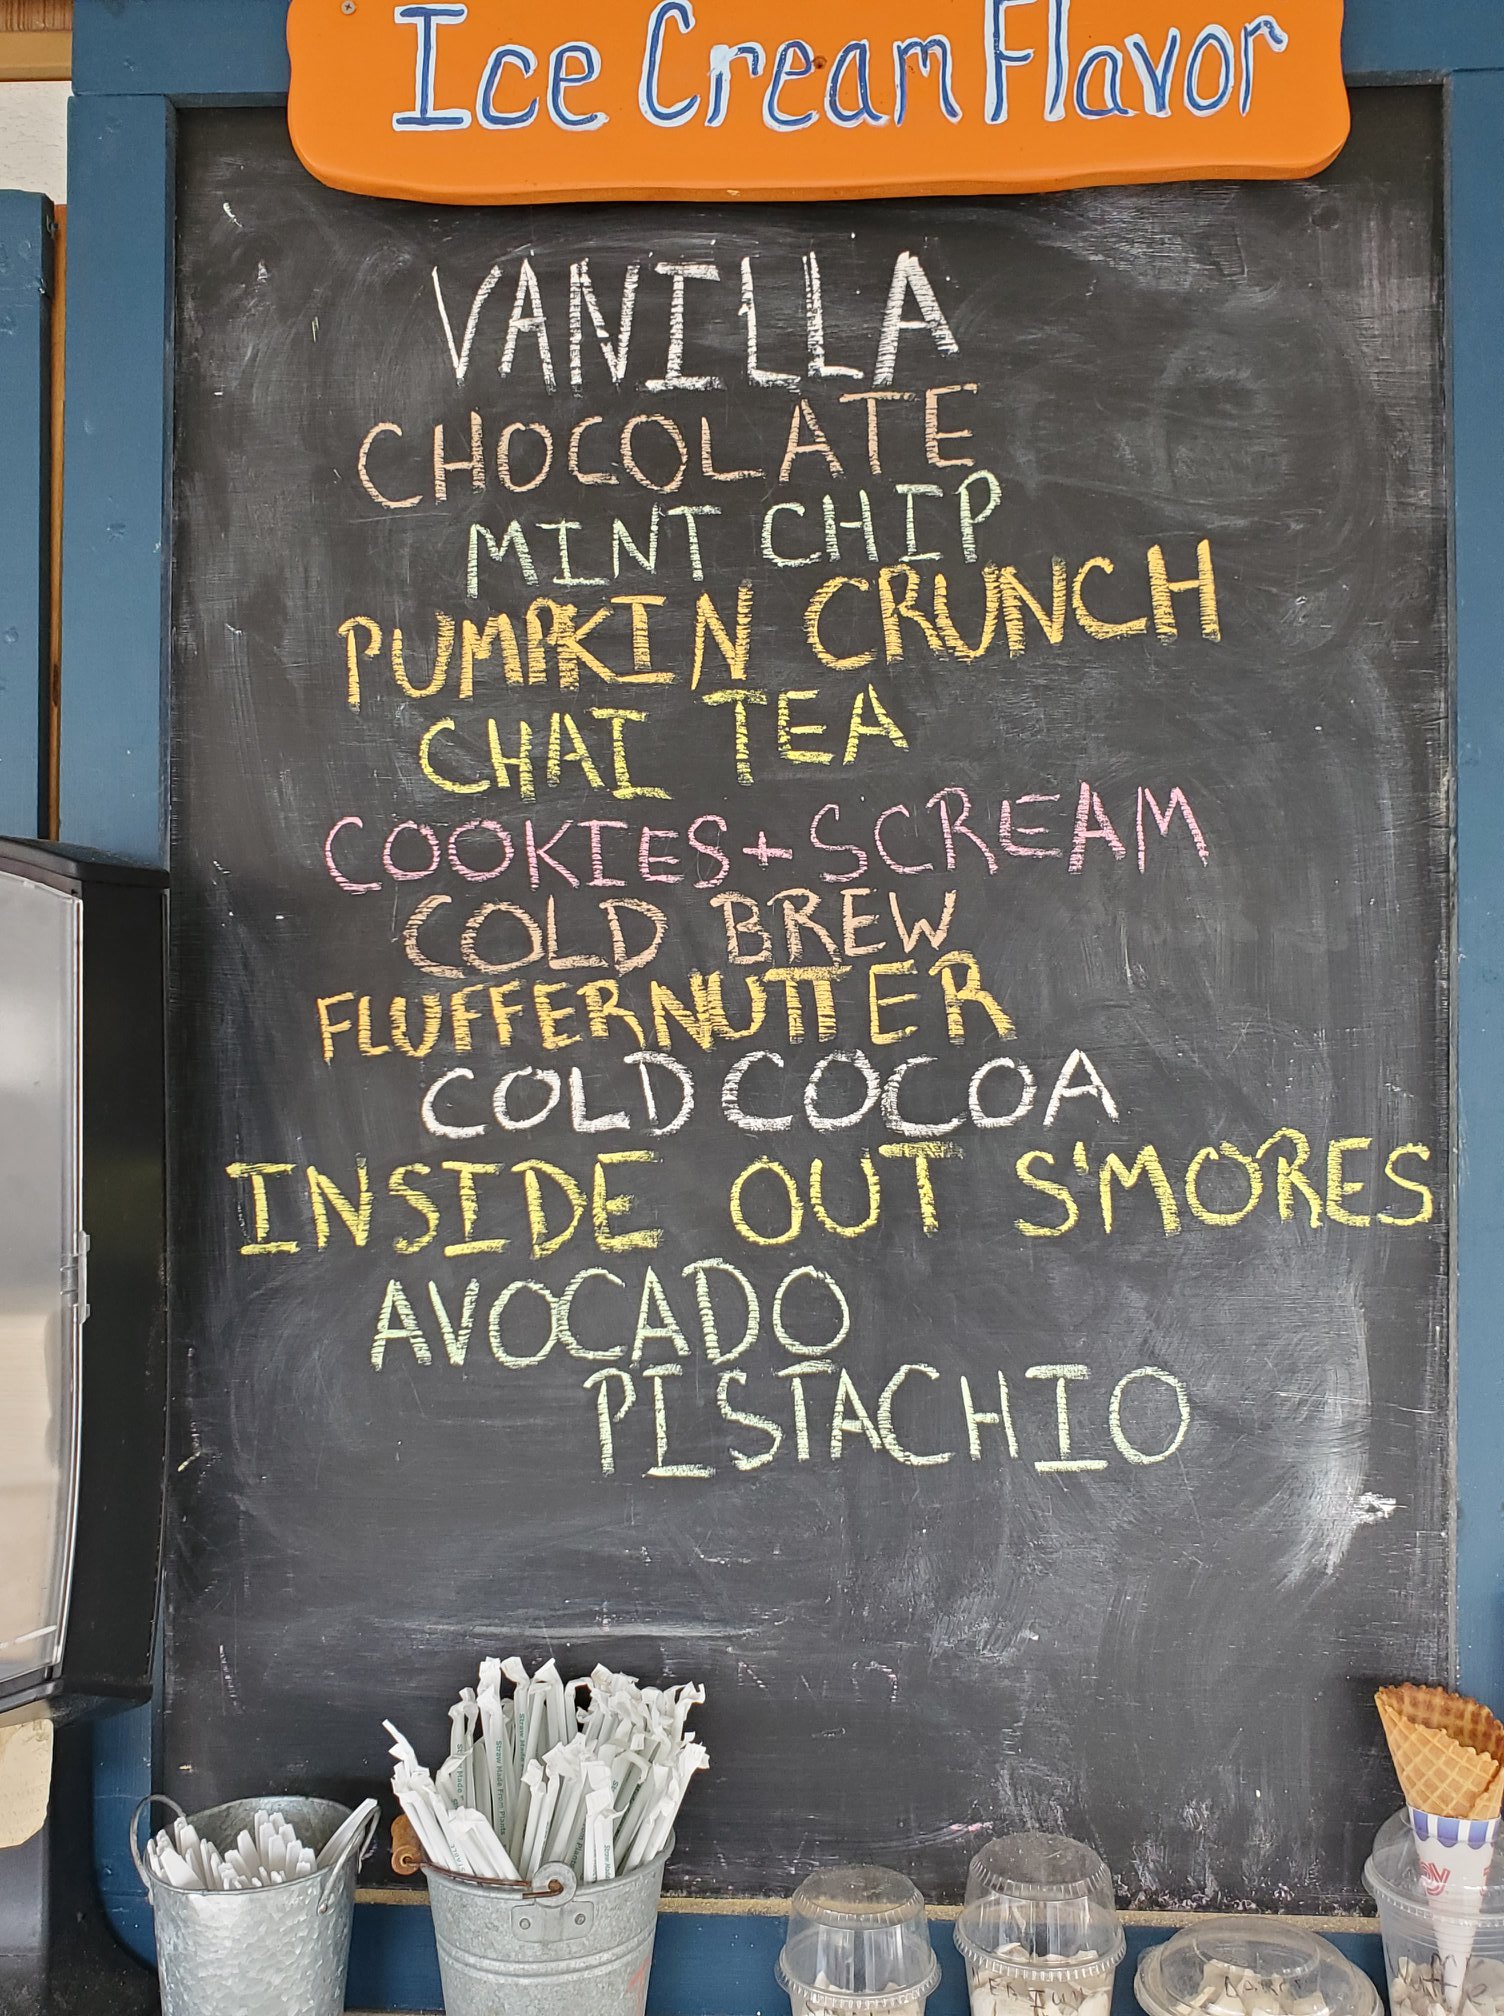 Ice Cream Flavor
VANILLA
CHOCOLATE
MINT CHIP
PUMPKIN CRUNCH
CHAI TEA
COOKIES + SCREAM
COLD BREW
FLUFFERNUTTER
COLD COCOA
INSIDE OUT S'MORES
AVOCADO
PISTACHIO
Straw Made From Plants
Straw Made